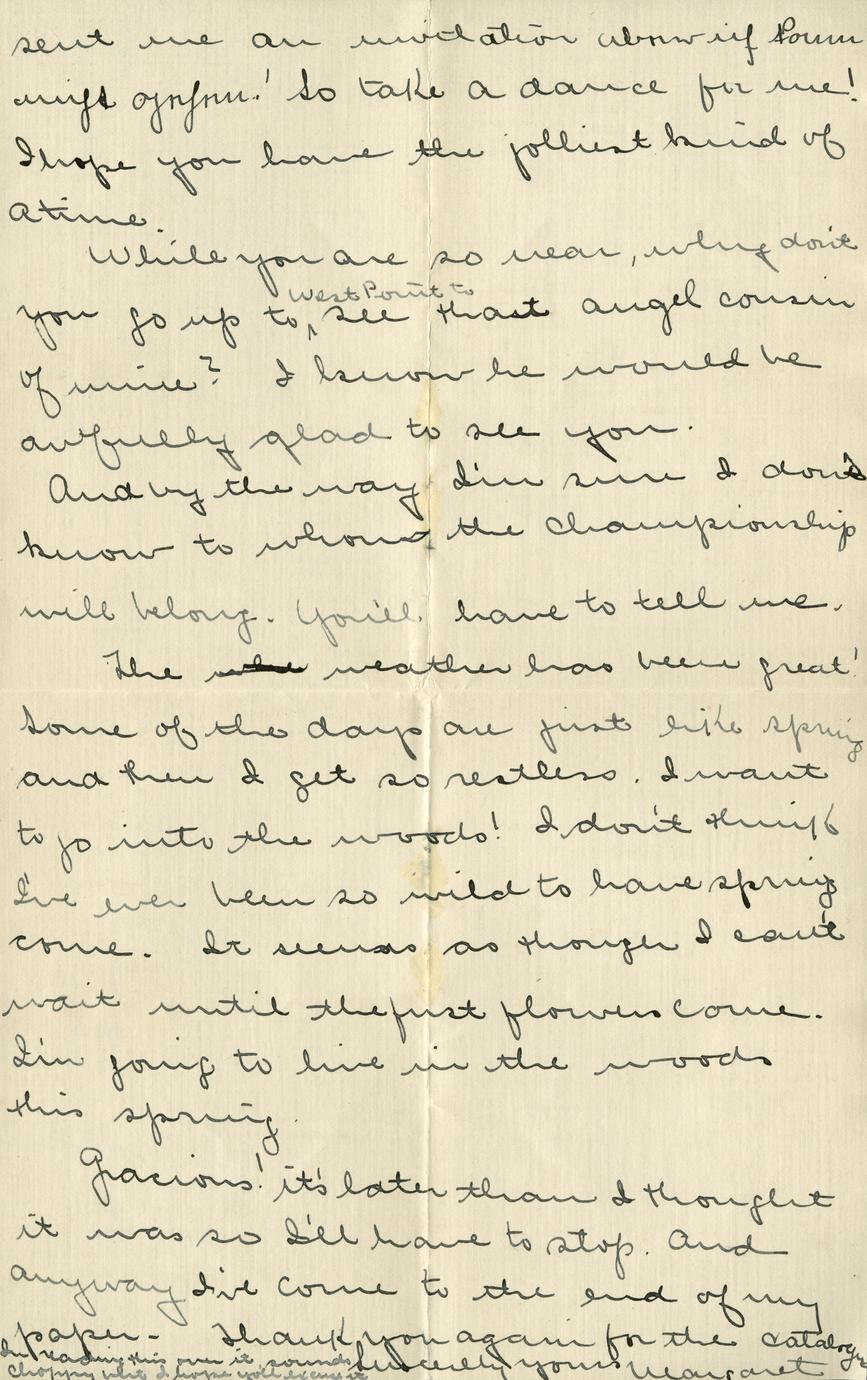 sent me an invitation
So take a dance for me!
I hope you have the jolliest kind of
a time.
While you are so near, why don't
you go up to West Point to see that angel cousin
of mine? I know he would be
awfully glad to see you.
And by the way I'm sure I don't
know to whom the championship
will belong. You'll have to tell me.
The weather has been great!
Some of the days are just like spring
and then I get so restless. I want
to go into the woods! I don't think
I've ever been so wild to have spring
come. It seems as though I can't
wait until the first flowers come.
I'm going to live in the woods
this spring.
Gracious! it's later than I thought
it was so I'll have to stop. And
anyway I've come to the end of my
paper - Thank you again for the catalogue
Sincerely yours Margaret
In reading this over it sounds
choppy but I hope you'll excuse it